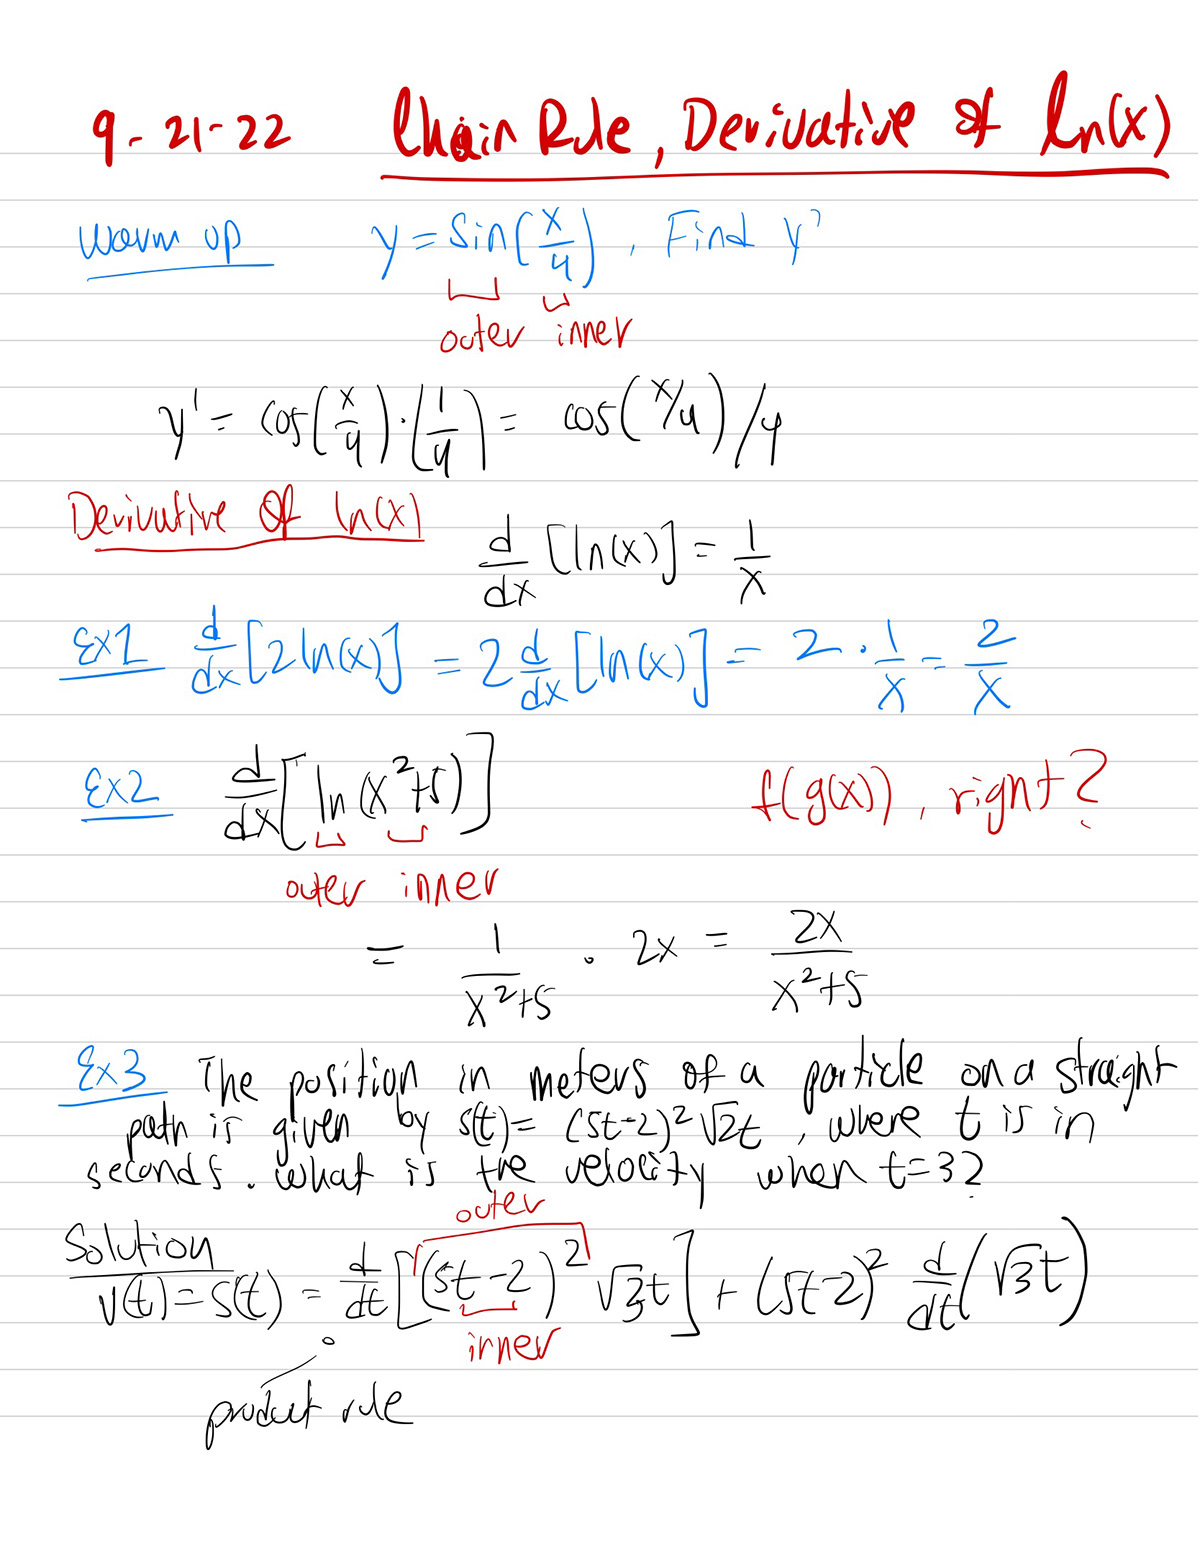 9-21-22 Chain Rule, Derivative of ln(x)
Warm up y = Sin(x/4), Find y'
outer inner
y' = cos(x/4)·(1/4) = cos(x/4)/4
Derivative of ln(x) d/dx [ln(x)] = 1/x
Ex1 d/dx [2ln(x)] = 2 d/dx [ln(x)] = 2 · 1/x = 2/x
Ex2 d/dx [ln(x²+5)] f(g(x)), right?
outer inner
= 1/(x²+5) · 2x = 2x/(x²+5)
Ex3 The position in meters of a particle on a straight
path is given by s(t) = (5t-2)²√2t, where t is in
seconds. What is the velocity when t=3?
outer
Solution
v(t) = s(t) = d/dt [(5t-2)² √3t] + (5t-2)² d/dt (√3t)
inner
product rule